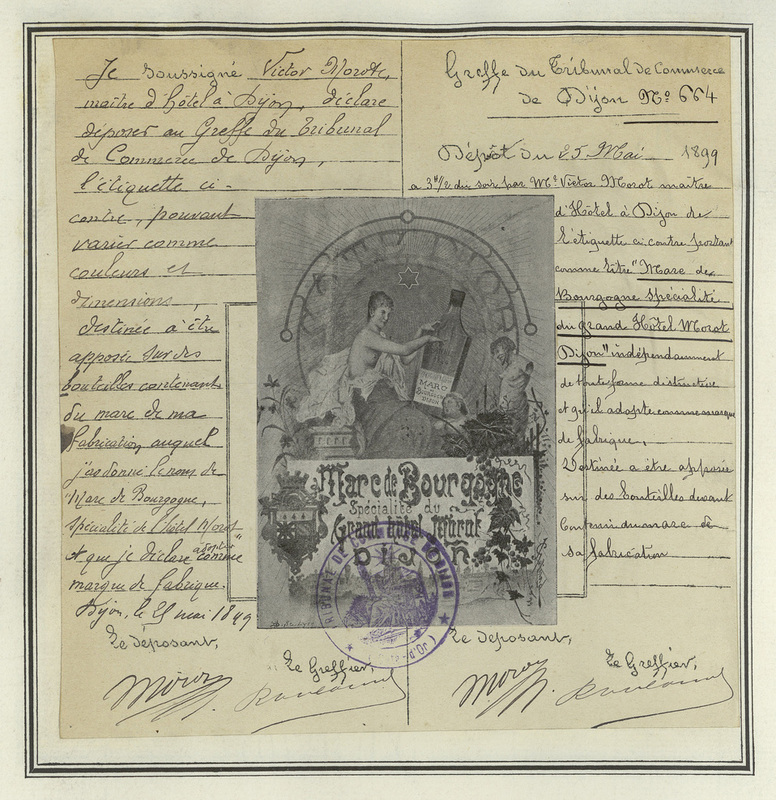 Je soussigné Victor Morot,
maître d'hôtel à Dijon, déclare
déposer au Greffe du Tribunal
de Commerce de Dijon,
l'étiquette ci-
contre, pouvant
varier comme
couleurs et
dimensions,
destinée à être
apposée sur des
bouteilles contenant
du marc de ma
fabrication auquel
j'ai donné le nom de
"Marc de Bourgogne,
spécialité de l'hôtel Morot"
et que je déclare adopter comme
marque de fabrique.
Dijon, le 25 mai 1899
Le déposant,
Le Greffier,
Morot
Greffe du Tribunal de Commerce
de Dijon No 664
Dépôt du 25 Mai 1899
a 3h1/2 du soir par Mr Victor Morot maître
d'Hôtel à Dijon de
l'étiquette ci contre portant
comme titre "Marc de
Bourgogne spécialité
du grand Hôtel Morot
Dijon" indépendamment
de toute forme distinctive
et qu'il adopte comme marque
de fabrique,
Destinée a être apposée
sur des bouteilles devant
contenir du marc de
sa fabrication
Le déposant,
Le Greffier,
Morot
MARC
DE
BOURGOGNE
DIJON
Marc de Bourgogne
Spécialité du
Grand hôtel Morot
DIJON
TRIBUNAL DE COMMERCE DE DIJON
(Côte-d'Or)